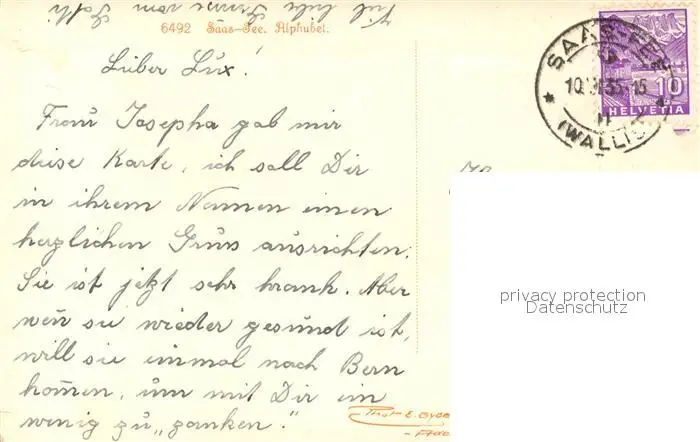 Viel liebe Grüsse vom
6492 Saas-Fee. Alphubel.
Lieber Lux!
Frau Josepha gab mir
diese Karte, ich soll Dir
in ihrem Namen einen
herzlichen Gruss ausrichten.
Sie ist jetzt sehr krank. Aber
wen̄ sie wieder gesund ist,
will sie einmal nach Bern
kom̄en, um mit Dir ein
wenig zu „zanken."
SAAS-FEE
35-15
(WALLIS)
10
HELVETIA
privacy protection
Datenschutz
Phot. E. Gyger